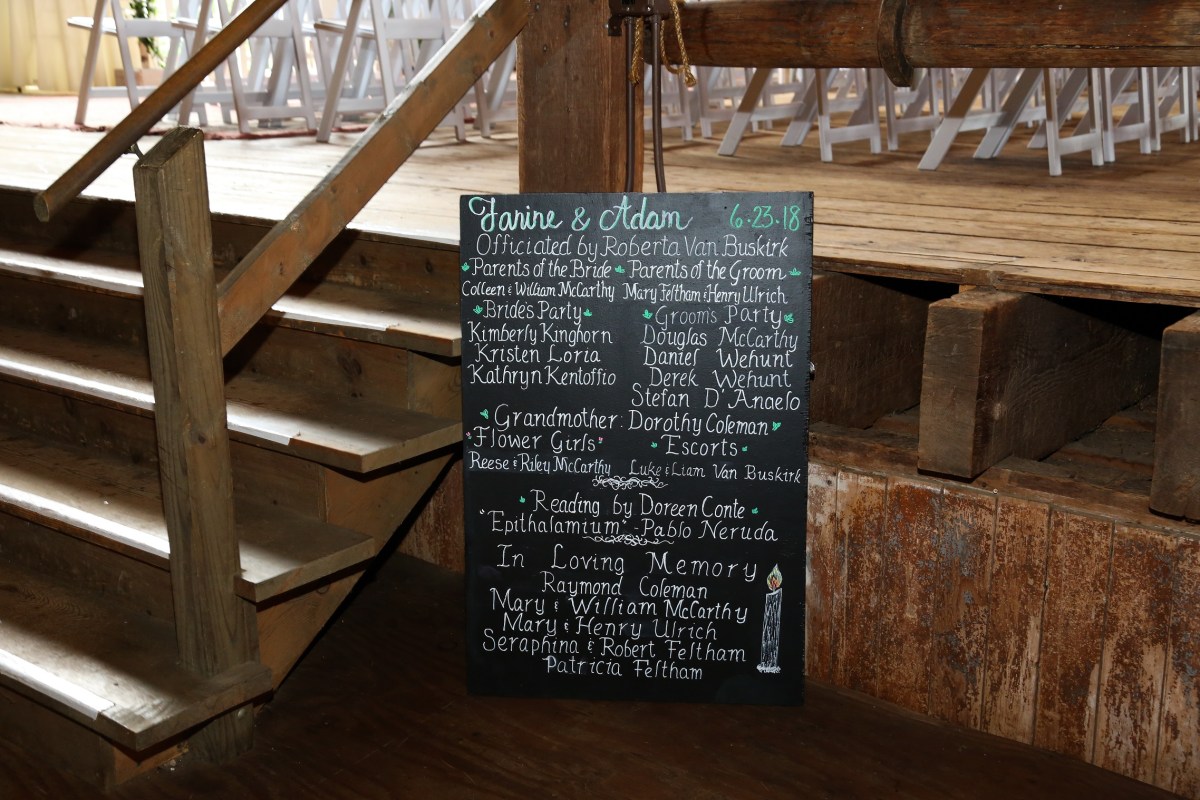 Janine & Adam 6·23·18
Officiated by Roberta Van Buskirk
Parents of the Bride Parents of the Groom
Colleen & William McCarthy Mary Feltham & Henry Ulrich
Bride's Party Groom's Party
Kimberly Kinghorn Douglas McCarthy
Kristen Loria Daniel Wehunt
Kathryn Kentoffio Derek Wehunt
Stefan D'Angelo
Grandmother: Dorothy Coleman
Flower Girls Escorts
Reese & Riley McCarthy Luke & Liam Van Buskirk
Reading by Doreen Conte
"Epithalamium" - Pablo Neruda
In Loving Memory
Raymond Coleman
Mary & William McCarthy
Mary & Henry Ulrich
Seraphina & Robert Feltham
Patricia Feltham